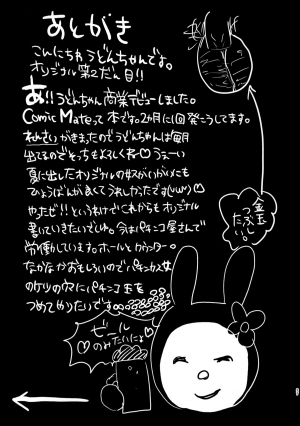 あとがき
こんにちわうどんちゃんです。
オリジナル第2だん目!!
あ!!うどんちゃん商業デビューしました。
Comic Mateって本です。2か月に1回発こうしてます。
れんさいがきまったのでうどんちゃんは毎月
出てるのでそっちもよろしくね♡うぇーい
夏に出したオリジナルのメスガキがいがいにも
ひょうばんがよくてうれしかったです(ЦωЦ)♡
やったぜ!!というわけでこれからもオリジナル
書いていきたいでしね。今はパチンコ屋さんで
労働しています。ホールとカウンター。
なかなかおもしろいのでパチンカス女
のケツの穴にパチンコ玉を
つめてやりたいです
金玉
つぶし
たい。
ビール
のみたいにょ